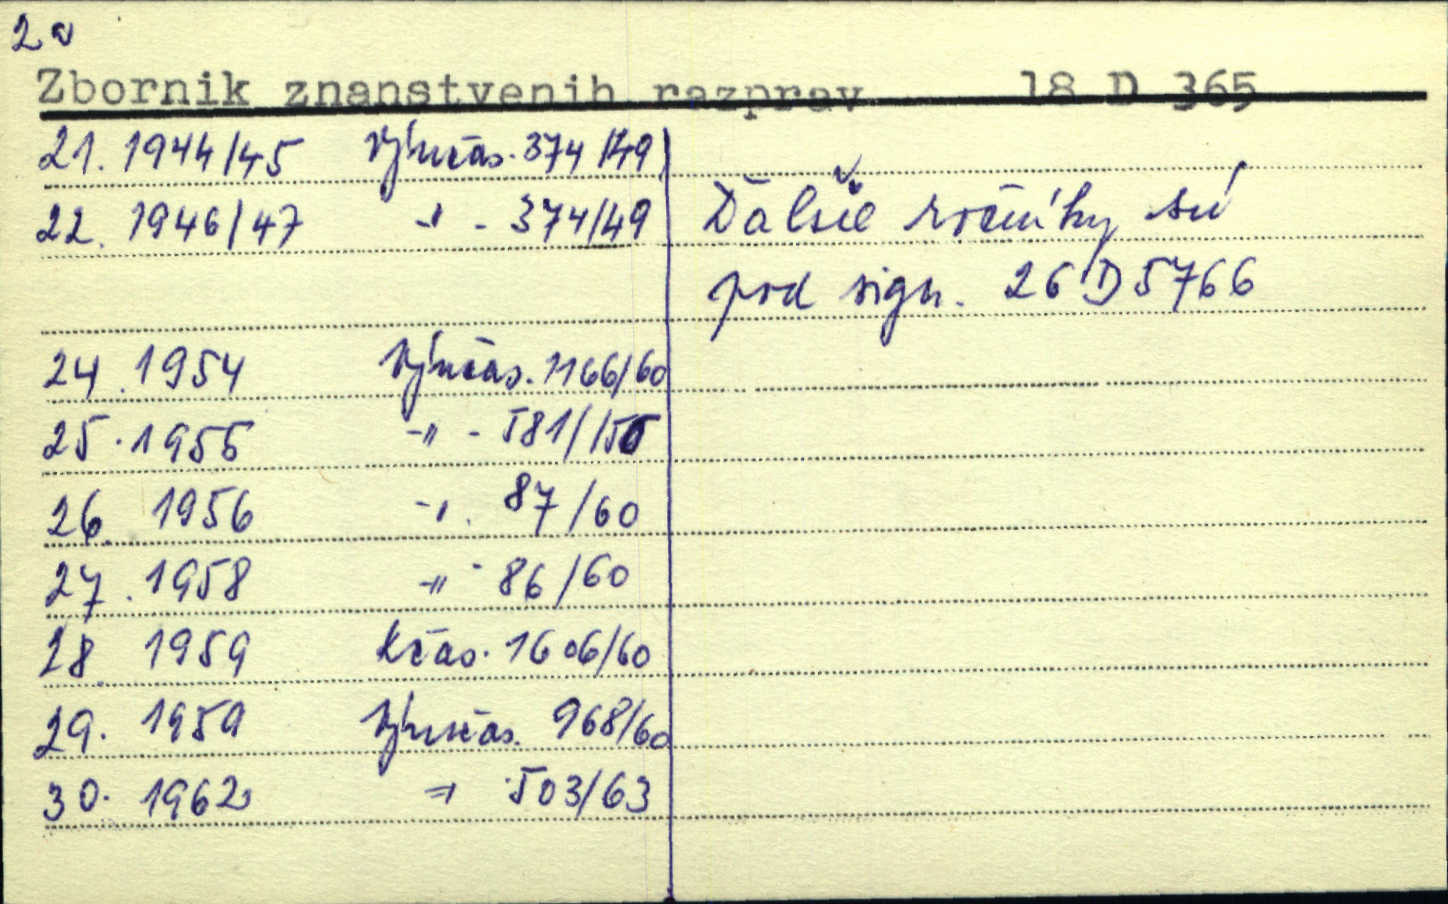 2a
Zbornik znanstvenih razprav 18 D 365
21. 1944/45 Výmčas. 374/49
22. 1946/47 -"- 374/49
Ďalšie ročníky sú
pod sign. 26 D 5766
24. 1954 Výmčas. 1166/60
25. 1955 -"- 581/
26. 1956 -"- 87/60
27. 1958 -"- 86/60
28 1959 Kčas. 1606/60
29. 1959 Výmčas. 968/60
30. 1962 -"- 503/63